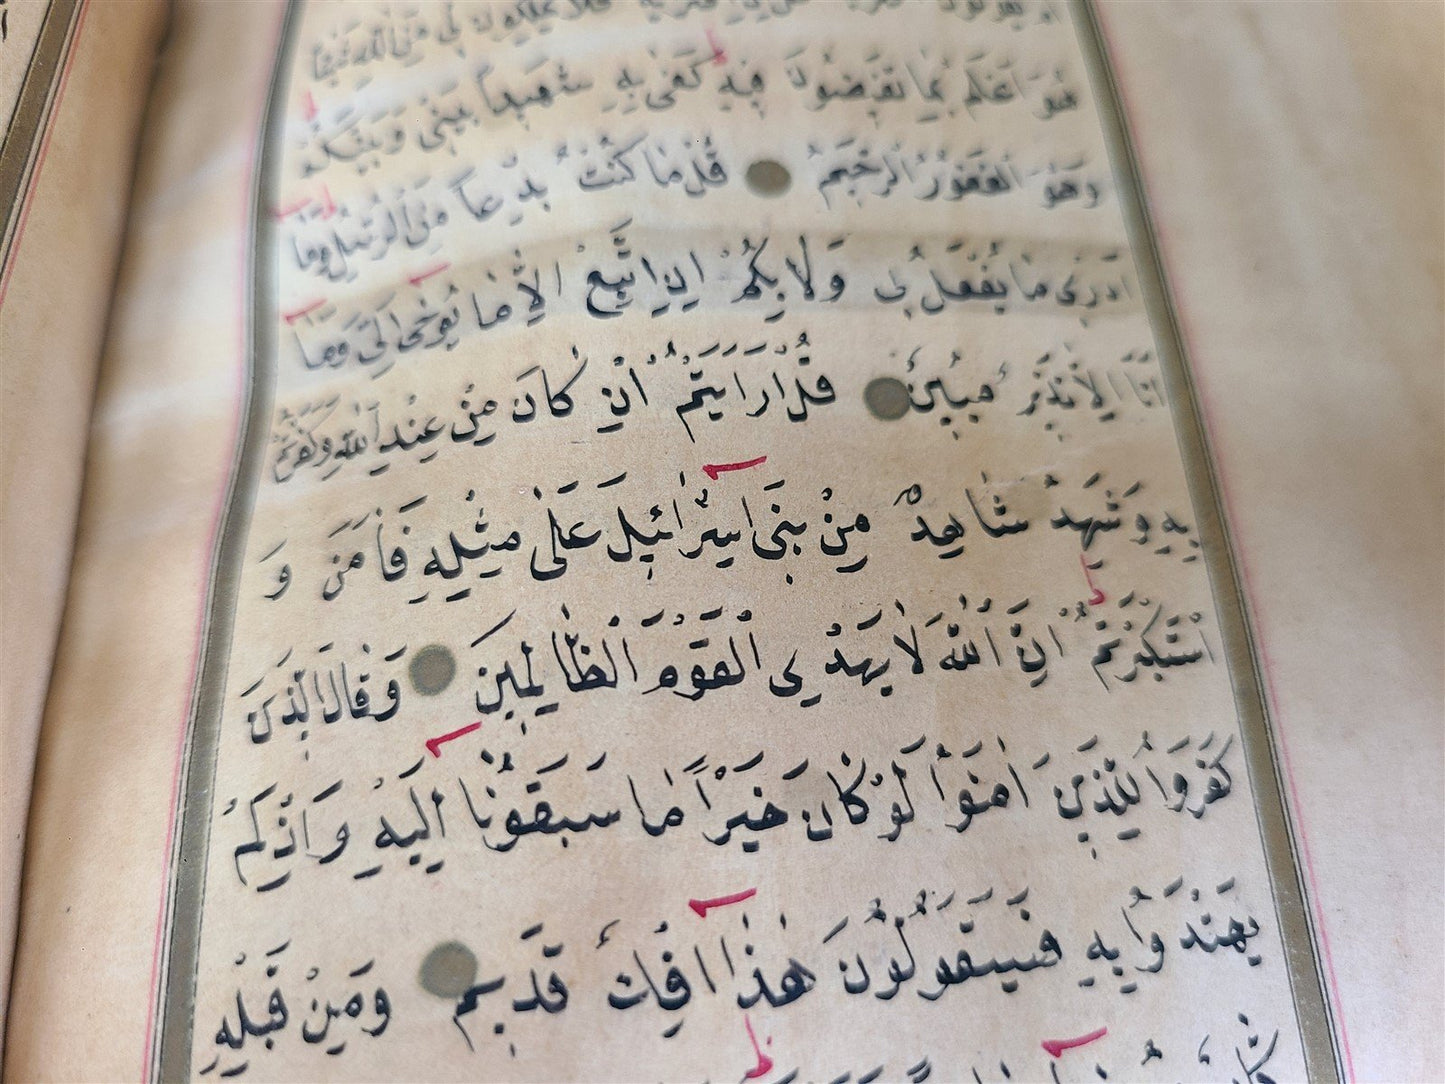 تَمْلِكُونَ لِي مِنَ اللّٰهِ شَيْئًا
هُوَ اَعْلَمُ بِمَا تُفِيضُونَ فِيهِ كَفٰى بِهِ شَهِيدًا بَيْنِي وَبَيْنَكُمْ
وَهُوَ الْغَفُورُ الرَّحِيمُ قُلْ مَا كُنْتُ بِدْعًا مِنَ الرُّسُلِ وَمَا
اَدْرِى مَا يُفْعَلُ بِى وَلَا بِكُمْ اِنْ اَتَّبِعُ اِلَّا مَا يُوحٰى اِلَىَّ وَمَا
اَنَا اِلَّا نَذِيرٌ مُبِينٌ قُلْ اَرَاَيْتُمْ اِنْ كَانَ مِنْ عِنْدِ اللّٰهِ وَكَفَرْتُمْ
بِهِ وَشَهِدَ شَاهِدٌ مِنْ بَنِى اِسْرَائِيلَ عَلٰى مِثْلِهِ فَاٰمَنَ وَ
اسْتَكْبَرْتُمْ اِنَّ اللّٰهَ لَا يَهْدِى الْقَوْمَ الظَّالِمِينَ وَقَالَ الَّذِينَ
كَفَرُوا لِلَّذِينَ اٰمَنُوا لَوْ كَانَ خَيْرًا مَا سَبَقُونَا اِلَيْهِ وَاِذْ لَمْ
يَهْتَدُوا بِهِ فَسَيَقُولُونَ هٰذَا اِفْكٌ قَدِيمٌ وَمِنْ قَبْلِهِ